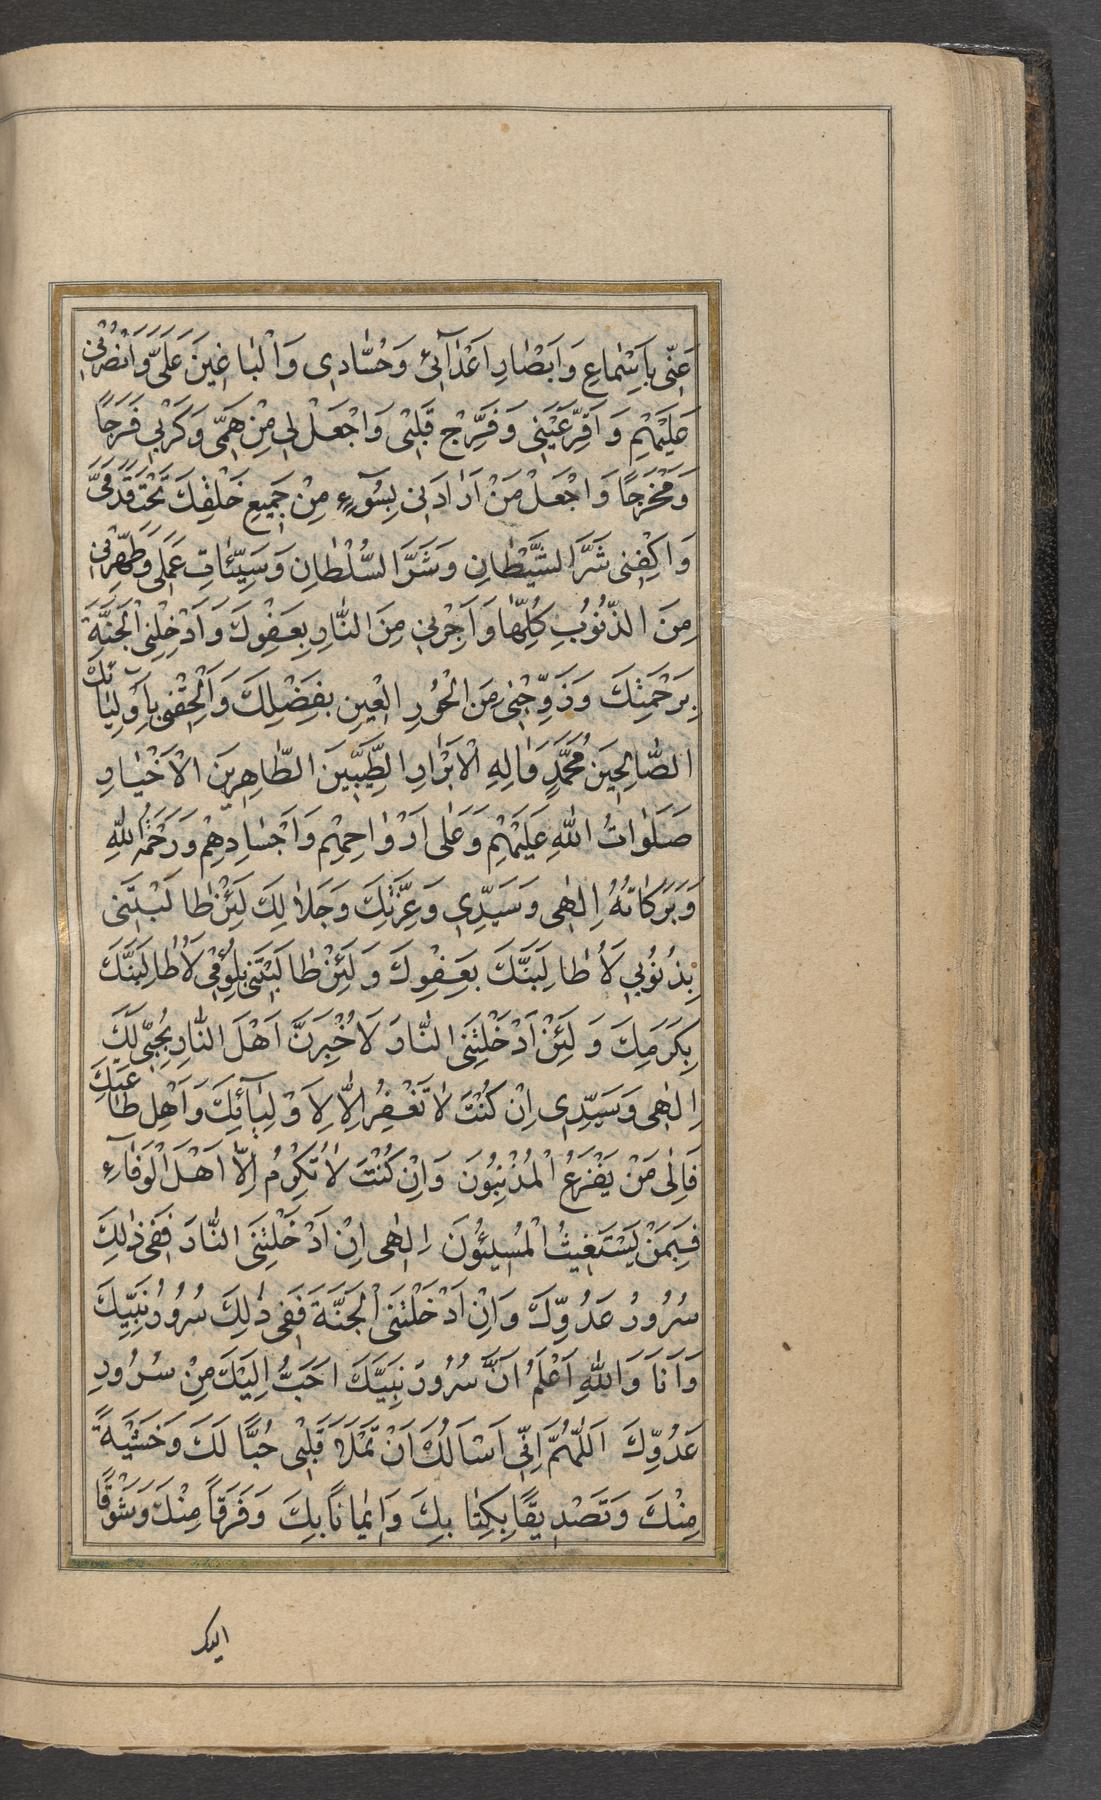 عَنّي بِاَسْماعِ وَاَبْصٰارِ اَعْدٰآئي وَحُسّٰادي وَالْبٰاغينَ عَلَيَّ وَانْصُرْني
عَلَيْهِمْ وَاَقِرَّ عَيْني وَفَرِّجْ قَلْبي وَاجْعَلْ لي مِنْ هَمّي وَكَرْبي فَرَجًا
وَمَخْرَجًا وَاجْعَلْ مَنْ اَرٰادَني بِسُوٓءٍ مِنْ جَميعِ خَلْقِكَ تَحْتَ قَدَمَيَّ
وَاكْفِني شَرَّ الشَّيْطٰانِ وَشَرَّ السُّلْطٰانِ وَسَيِّئٰاتِ عَمَلي وَطَهِّرْني
مِنَ الذُّنُوبِ كُلِّهٰا وَاَجِرْني مِنَ النّٰارِ بِعَفْوِكَ وَاَدْخِلْنِي الْجَنَّةَ
بِرَحْمَتِكَ وَزَوِّجْني مِنَ الْحُورِ الْعينِ بِفَضْلِكَ وَاَلْحِقْني بِاَوْلِيٰآئِكَ
الصّٰالِحينَ مُحَمَّدٍ وَاٰلِهِ الْاَبْرٰارِ الطَّيِّبينَ الطّٰاهِرينَ الْاَخْيٰارِ
صَلَوٰاتُ اللّٰهِ عَلَيْهِمْ وَعَلٰى اَرْوٰاحِهِمْ وَاَجْسٰادِهِمْ وَرَحْمَةُ اللّٰهِ
وَبَرَكٰاتُهُ اِلٰهي وَسَيِّدي وَعِزَّتِكَ وَجَلٰالِكَ لَئِنْ طٰالَبْتَني
بِذُنُوبي لَاُطٰالِبَنَّكَ بِعَفْوِكَ وَلَئِنْ طٰالَبْتَني بِلُؤْمي لَاُطٰالِبَنَّكَ
بِكَرَمِكَ وَلَئِنْ اَدْخَلْتَنِي النّٰارَ لَاُخْبِرَنَّ اَهْلَ النّٰارِ بِحُبّي لَكَ
اِلٰهي وَسَيِّدي اِنْ كُنْتَ لٰا تَغْفِرُ اِلّٰا لِاَوْلِيٰآئِكَ وَاَهْلِ طٰاعَتِكَ
فَاِلٰى مَنْ يَفْزَعُ الْمُذْنِبُونَ وَاِنْ كُنْتَ لٰا تُكْرِمُ اِلّٰا اَهْلَ الْوَفٰآءِ
فَبِمَنْ يَسْتَغيثُ الْمُسيئُونَ اِلٰهي اِنْ اَدْخَلْتَنِي النّٰارَ فَفي ذٰلِكَ
سُرُورُ عَدُوِّكَ وَاِنْ اَدْخَلْتَنِي الْجَنَّةَ فَفي ذٰلِكَ سُرُورُ نَبِيِّكَ
وَاَنَا وَاللّٰهِ اَعْلَمُ اَنَّ سُرُورَ نَبِيِّكَ اَحَبُّ اِلَيْكَ مِنْ سُرُورِ
عَدُوِّكَ اَللّٰهُمَّ اِنّي اَسْاَلُكَ اَنْ تَمْلَاَ قَلْبي حُبًّا لَكَ وَخَشْيَةً
مِنْكَ وَتَصْديقًا بِكِتٰابِكَ وَايمٰانًا بِكَ وَفَرَقًا مِنْكَ وَشَوْقًا
اليك